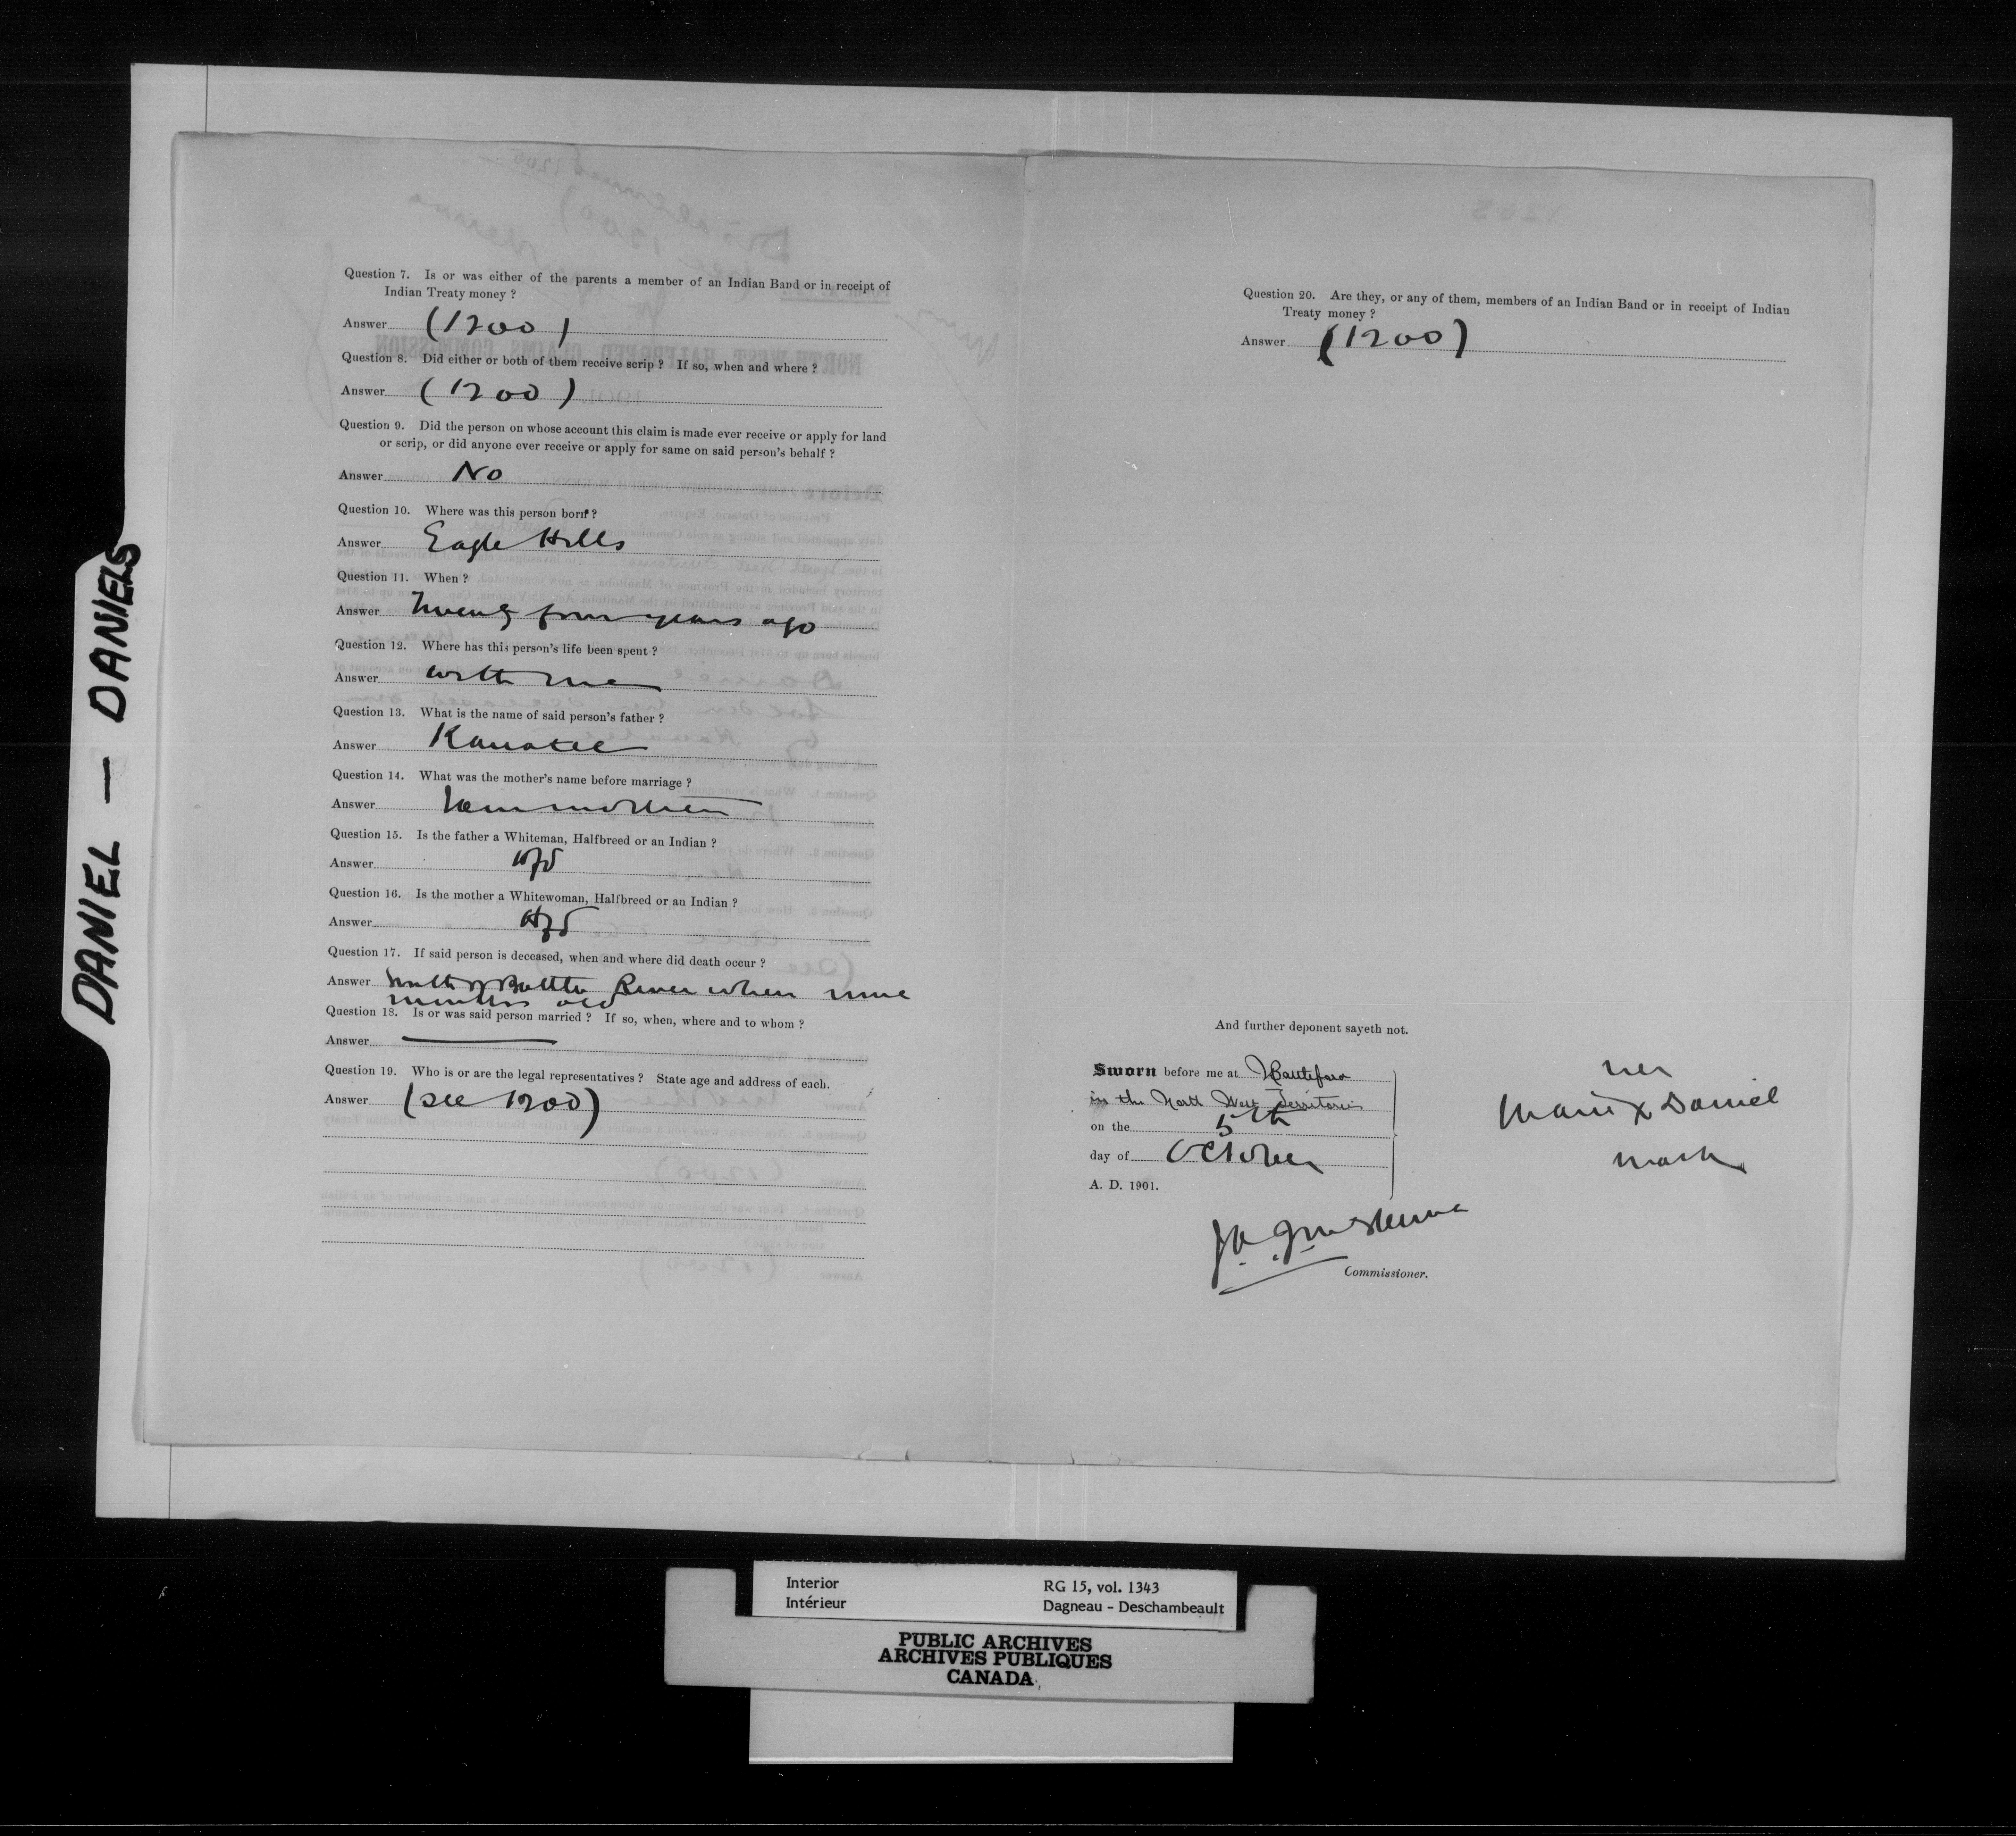 DANIEL — DANIELS
Question 7. Is or was either of the parents a member of an Indian Band or in receipt of
Indian Treaty money ?
Answer (1200)
Question 8. Did either or both of them receive scrip ? If so, when and where ?
Answer (1200)
Question 9. Did the person on whose account this claim is made ever receive or apply for land
or scrip, or did anyone ever receive or apply for same on said person's behalf ?
Answer No
Question 10. Where was this person born ?
Answer Eagle Hills
Question 11. When ?
Answer Twenty four years ago
Question 12. Where has this person's life been spent ?
Answer with me
Question 13. What is the name of said person's father ?
Answer Kanatee
Question 14. What was the mother's name before marriage ?
Answer I am mother
Question 15. Is the father a Whiteman, Halfbreed or an Indian ?
Answer Hfb
Question 16. Is the mother a Whitewoman, Halfbreed or an Indian ?
Answer Hfb
Question 17. If said person is deceased, when and where did death occur ?
Answer Battle River when nine
months old
Question 18. Is or was said person married ? If so, when, where and to whom ?
Answer —
Question 19. Who is or are the legal representatives ? State age and address of each.
Answer (see 1200)
Question 20. Are they, or any of them, members of an Indian Band or in receipt of Indian
Treaty money ?
Answer (1200)
And further deponent sayeth not.
Sworn before me at Battleford
in the North West Territories
on the 5th
day of October
A. D. 1901.
her
Marie X Daniel
mark
J. A. J. McKenna
Commissioner.
Interior
Intérieur
RG 15, vol. 1343
Dagneau - Deschambeault
PUBLIC ARCHIVES
ARCHIVES PUBLIQUES
CANADA